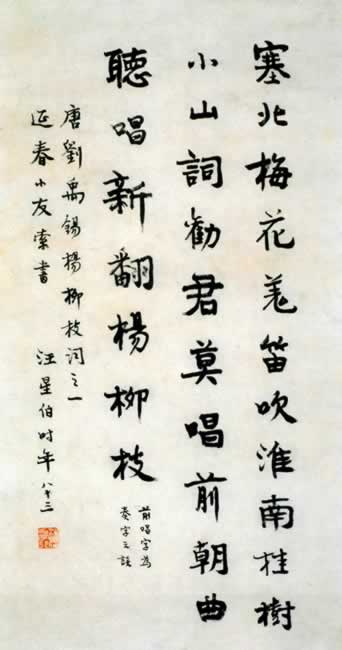 塞北梅花羌笛吹淮南桂樹
小山詞勸君莫唱前朝曲
聽唱新翻楊柳枝
前唱字為
奏字之誤
唐劉禹錫楊柳枝詞之一
延春小友索書 汪星伯時年八十三